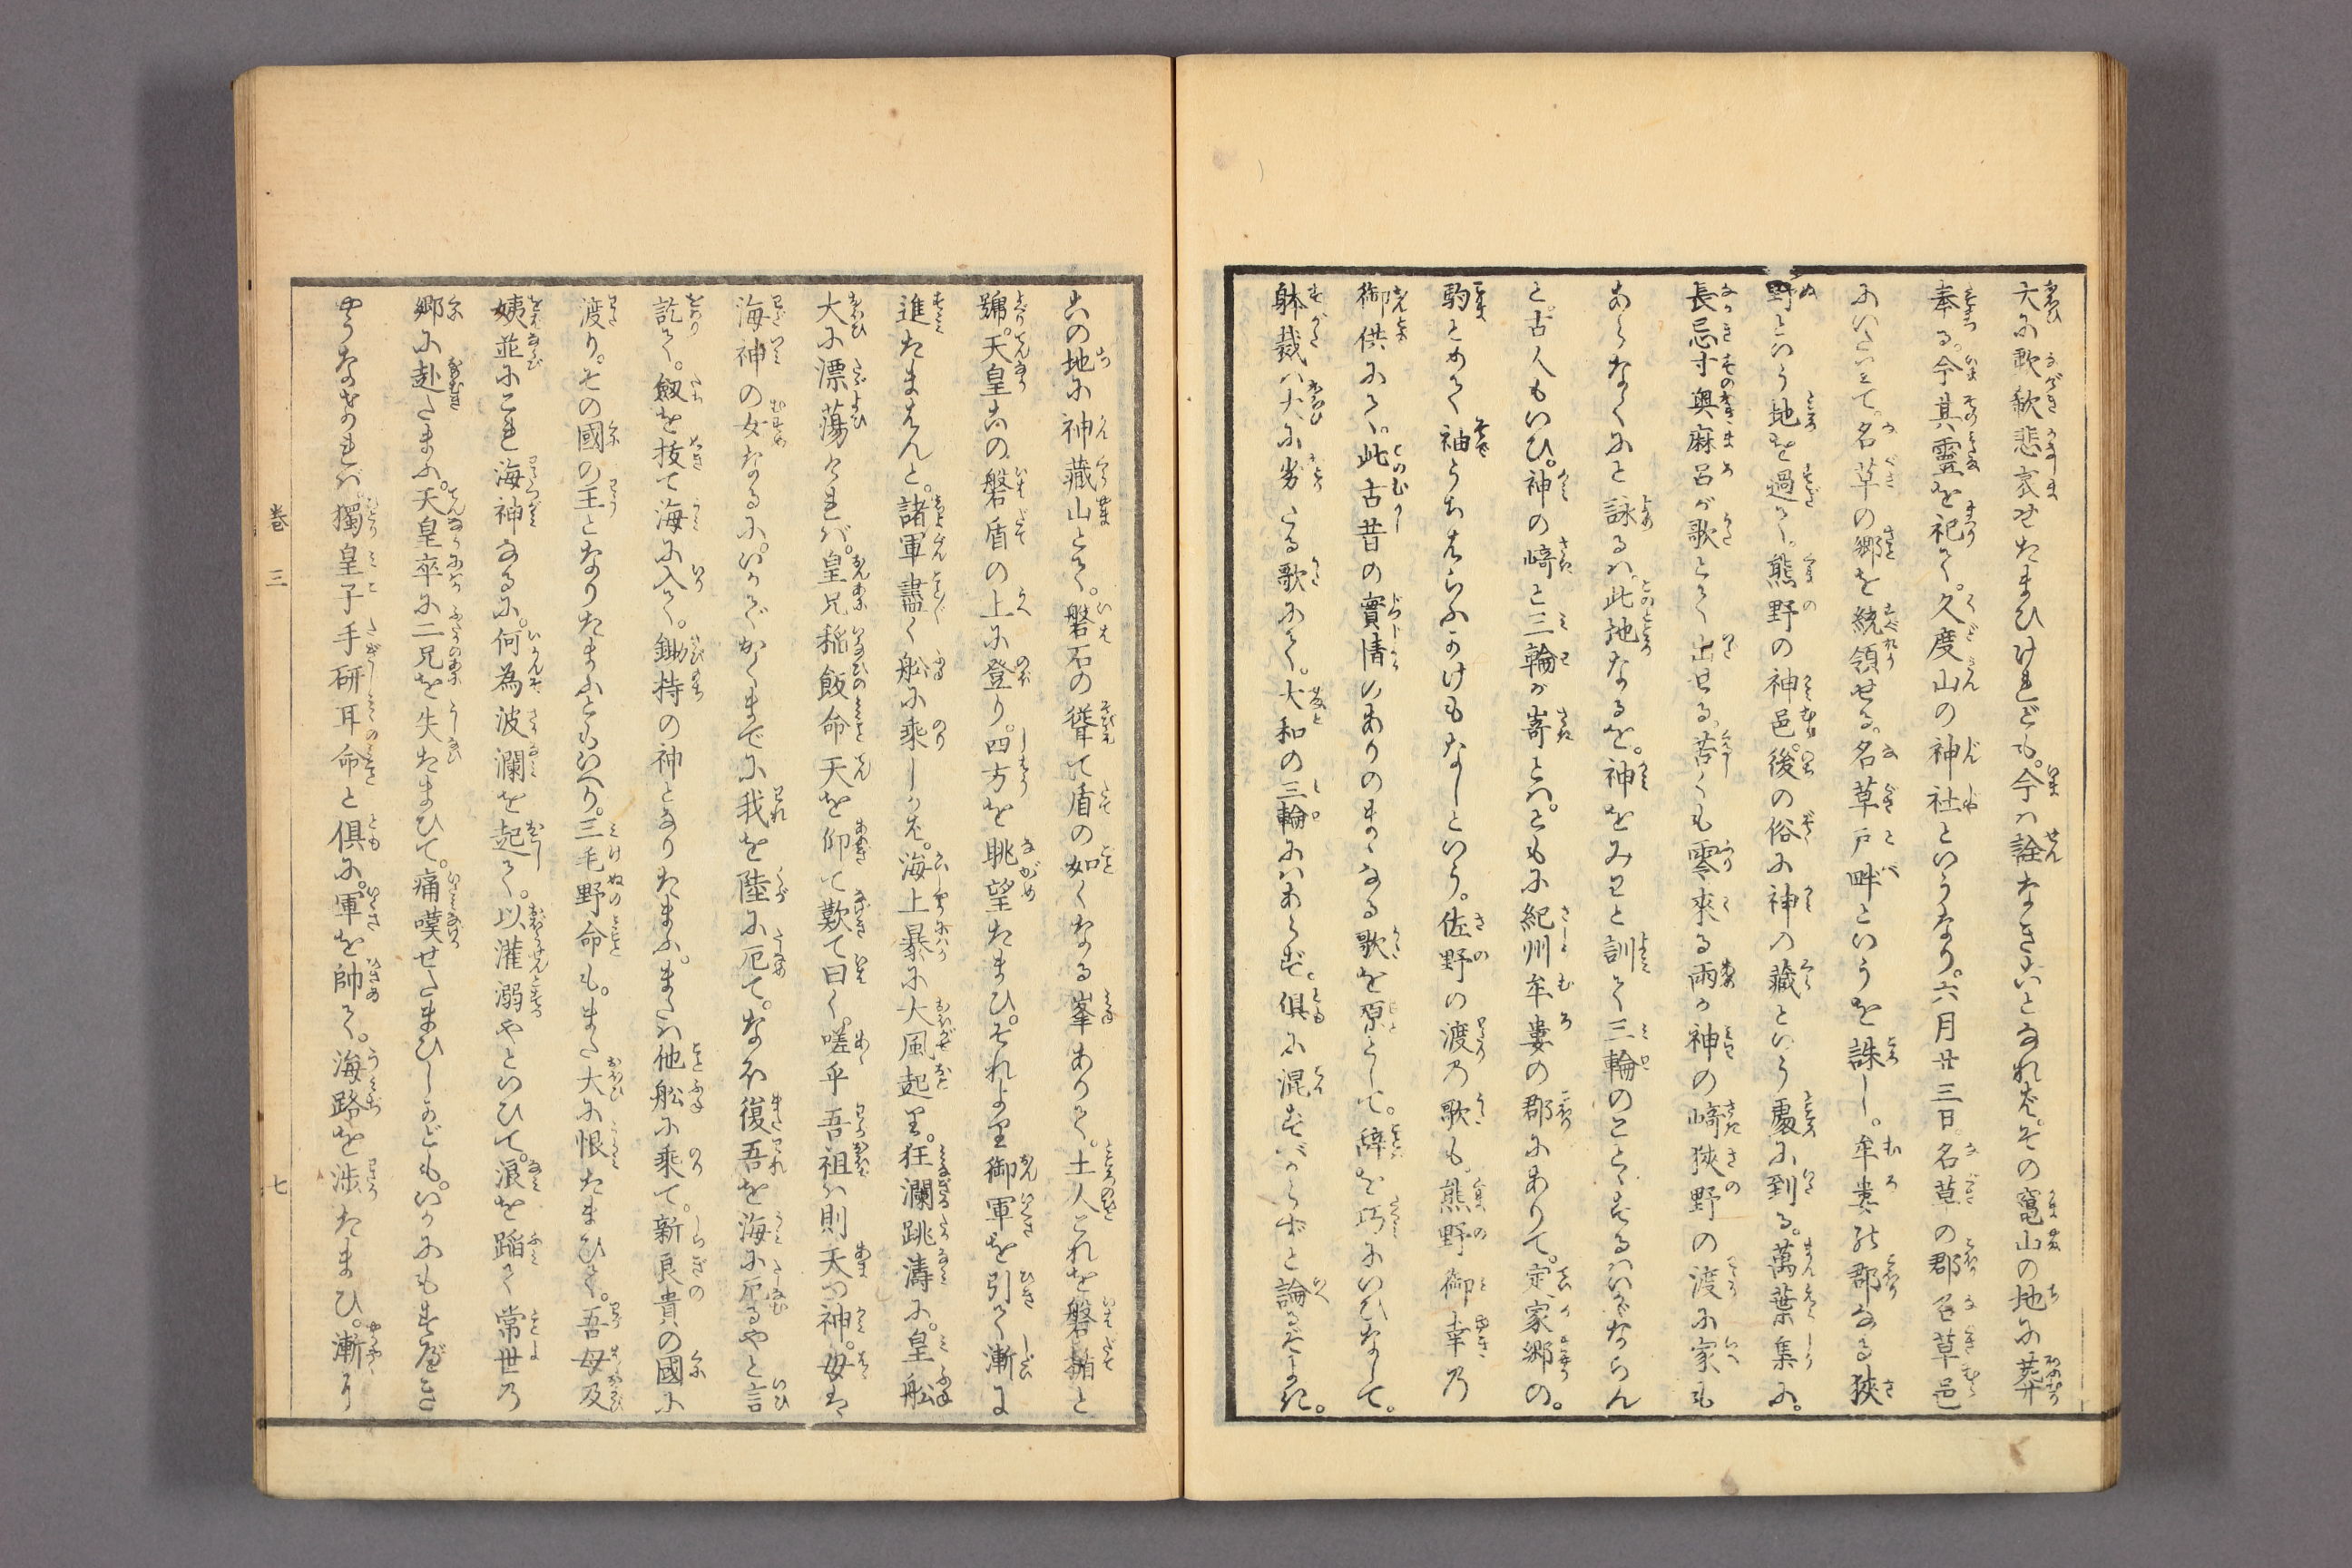 大に歎欷悲哀せたまひけれども。今ハ詮なきかいとなれば。その竃山の地に葬
奉る。今其霊を祀て。久度山の神社といふなり。六月廿三日。名草の郡名草邑
にいたりて。名草の郷を統領せる。名草戸畔といふを誅し。牟婁の郡なる狭
野といふ地を過て。熊野の神邑。後の俗に神の藏といふ處に到る。萬葉集に。
長忌寸奥麻呂が歌とて出せる。苦くも零来る雨か神の﨑狭野の渡に家も
あらなくにと詠るハ。此地なるを。神をみわと訓て三輪のことゝするハいかならん
と。古人もいひ。神の﨑と三輪が嵜とハ。ともに紀州牟婁の郡にありて。定家郷の。
駒とめて袖うちはらふかけもなしといふ。佐野の渡の歌も。熊野御幸の
御供にて。此古昔の實情のありのまゝなる歌を原として。辞を巧にいひなして。
躰裁ハ大に劣たる歌にて。大和の三輪にハあらず。倶に混ずべからずと論るべし。
此の地に神藏山とて。磐石の聳て盾の如くなる峯ありて。土人これを磐楯と
号。天皇此の磐盾の上に登り。四方を眺望たまひ。それより御軍を引て漸に
進たまはんと。諸軍盡く舩に乗しかば。海上暴に大風起り。狂瀾跳濤に。皇舩
大に漂蕩けれバ。皇兄稲飯命天を仰て歎て曰く。嗟乎吾祖ハ則天つ神。母は
海神の女なるに。いかでかくまでに我を陸に厄て。なほ復吾を海に厄るやと言
訖て。劔を抜て海に入て。鋤持の神となりたまふ。またハ他舩に乗て。新良貴の國に
渡り。その國の王となりたまふともいへり。三毛野命も。また大に恨たまひて。吾母及
姨並にこれ海神なるに。何為波瀾を起て。以灌溺やといひて。浪を蹈て常世乃
郷に赴たまふ。天皇卒に二兄を失たまひて。痛嘆せたまひしかども。いかにもすべき
やうなかりけれバ獨皇子手研耳命と倶に。軍を帥て。海路を渉たまひ。漸に
巻　三　七